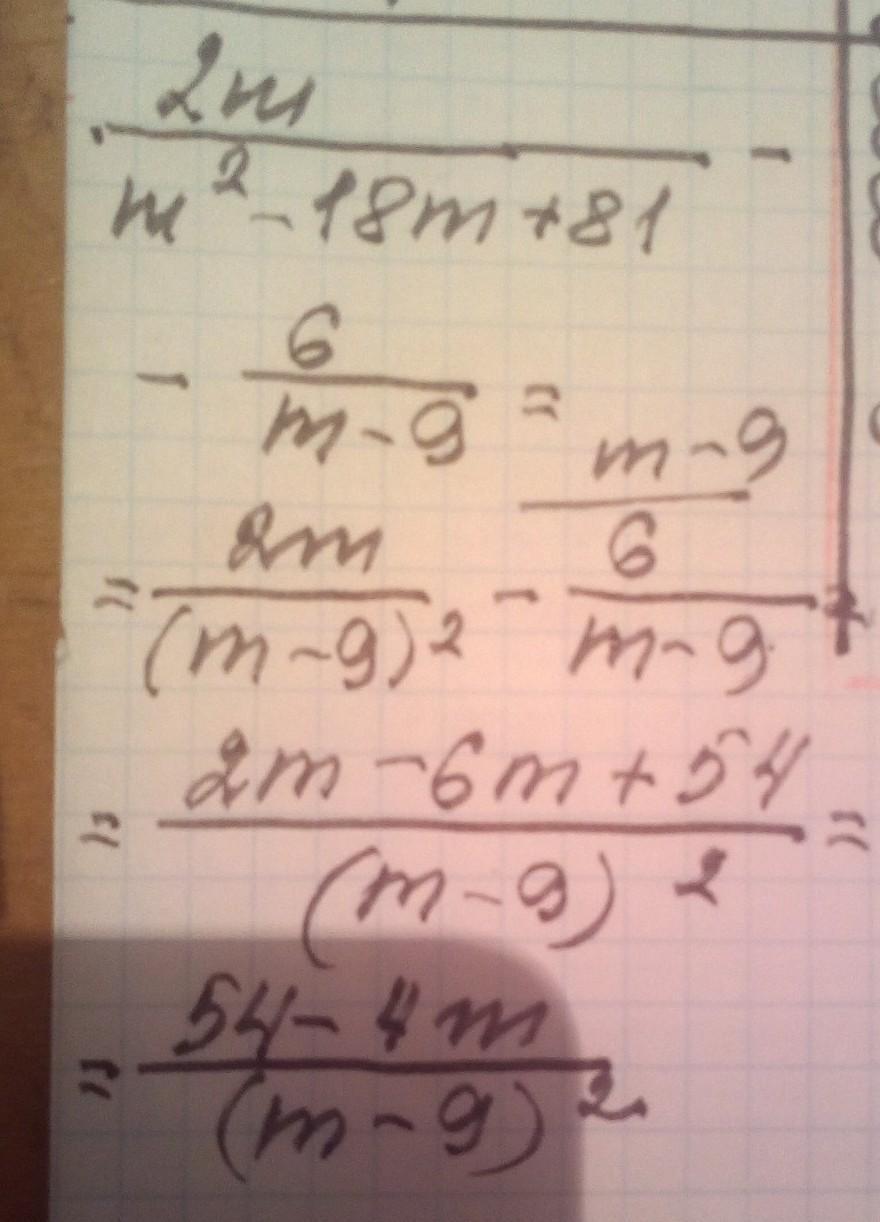 2m
m² - 18m + 81 -
- 6
m - 9 =
m - 9
= 2m - 6 =
(m - 9)² m - 9
= 2m - 6m + 54 =
(m - 9)²
= 54 - 4m
(m - 9)²